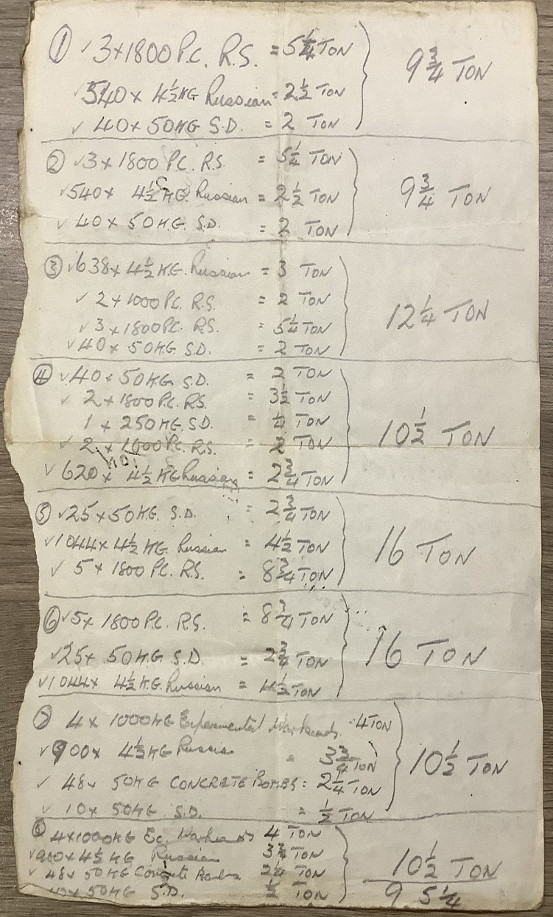 ① ✓3 × 1800 P.C. R.S. = 5¼ TON
✓540 × 4½ KG Russian = 2½ TON
✓ 40 × 50 KG S.D. = 2 TON
9¾ TON
② ✓3 × 1800 P.C. R.S = 5¼ TON
✓540 × 4½ KG. Russian = 2½ TON
✓ 40 × 50 KG. S.D. = 2 TON
9¾ TON
③ ✓638 × 4½ KG. Russian = 3 TON
✓ 2 × 1000 P.C. R.S. = 2 TON
✓ 3 × 1800 P.C. R.S. = 5¼ TON
✓40 × 50 KG S.D. = 2 TON
12¼ TON
④ ✓40 × 50 KG S.D. = 2 TON
✓ 2 × 1800 P.C. R.S. = 3½ TON
1 × 250 KG S.D. = ¼ TON
✓ 2 × 1000 P.C. R.S. = 2 TON
✓ 620 × 4½ KG Russian = 2¾ TON
10½ TON
⑤ ✓25 × 50 KG. S.D. = 2¾ TON
✓1044 × 4½ KG Russian = 4½ TON
✓ 5 × 1800 P.C. R.S. = 8¾ TON
16 TON
⑥ ✓5 × 1800 P.C. R.S. = 8¾ TON
✓25 × 50 KG S.D. = 2¾ TON
✓1044 × 4½ K.G Russian = 4½ TON
16 TON
⑦ 4 × 1000 KG Experimental Warheads · 4 TON
✓900 × 4½ KG Russian = 3¾ TON
✓ 48 × 50 KG CONCRETE BOMBS = 2¼ TON
✓ 10 × 50 KG S.D. = ½ TON
10½ TON
4 × 1000 KG Ex. Warheads 4 TON
4½ KG Russian 3¾ TON
✓ 48 × 50 KG Concrete Bombs 2¼ TON
× 50 KG S.D. ½ TON
10½ TON
9 5¼